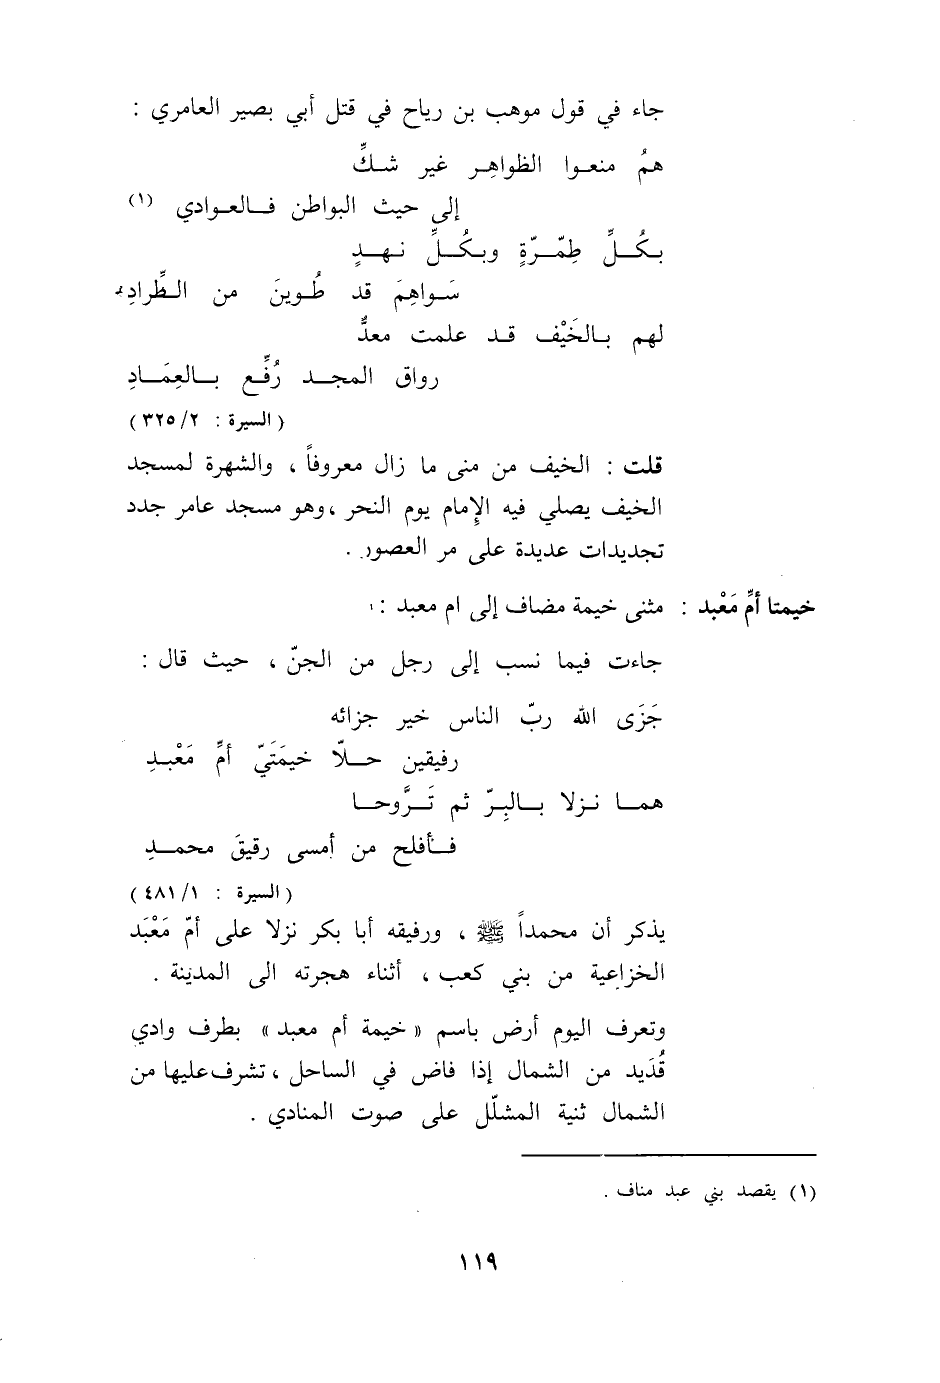 جاء في قول موهب بن رياح في قتل أبي بصير العامري :
همُ منعوا الظواهِر غير شكٍّ
إلى حيث البواطن فالعوادي (١)
بكُلِّ طِمّرةٍ وبكُلِّ نهدٍ
سَواهِمَ قد طُوينَ من الطِّرادِ
لهم بالخَيْف قد علمت معدٌّ
رواق المجد رُفِّع بالعِمَادِ
(السيرة : ٣٢٥/٢)
قلت : الخيف من منى ما زال معروفاً ، والشهرة لمسجد
الخيف يصلي فيه الإمام يوم النحر ، وهو مسجد عامر جدد
تجديدات عديدة على مر العصور .
خيمتا أمِّ مَعْبد : مثنى خيمة مضاف إلى ام معبد :
جاءت فيما نسب إلى رجل من الجنّ ، حيث قال :
جَزَى الله ربّ الناس خير جزائه
رفيقين حلّا خيمَتَيّ أمِّ مَعْبدِ
هما نزلا بالبِرّ ثم تَرَّوحا
فأفلح من أمسى رقيقَ محمدِ
(السيرة : ٤٨١/١)
يذكر أن محمداً ﷺ ، ورفيقه أبا بكر نزلا على أمّ مَعْبَد
الخزاعية من بني كعب ، أثناء هجرته الى المدينة .
وتعرف اليوم أرض باسم « خيمة أم معبد » بطرف وادي
قُدَيد من الشمال إذا فاض في الساحل ، تشرف عليها من
الشمال ثنية المشلّل على صوت المنادي .
(١) يقصد بني عبد مناف .
١١٩